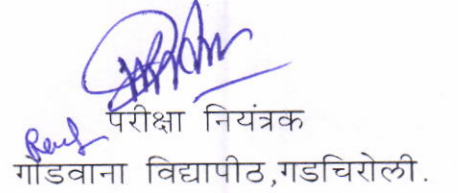 परीक्षा नियंत्रक
गोंडवाना विद्यापीठ,गडचिरोली.